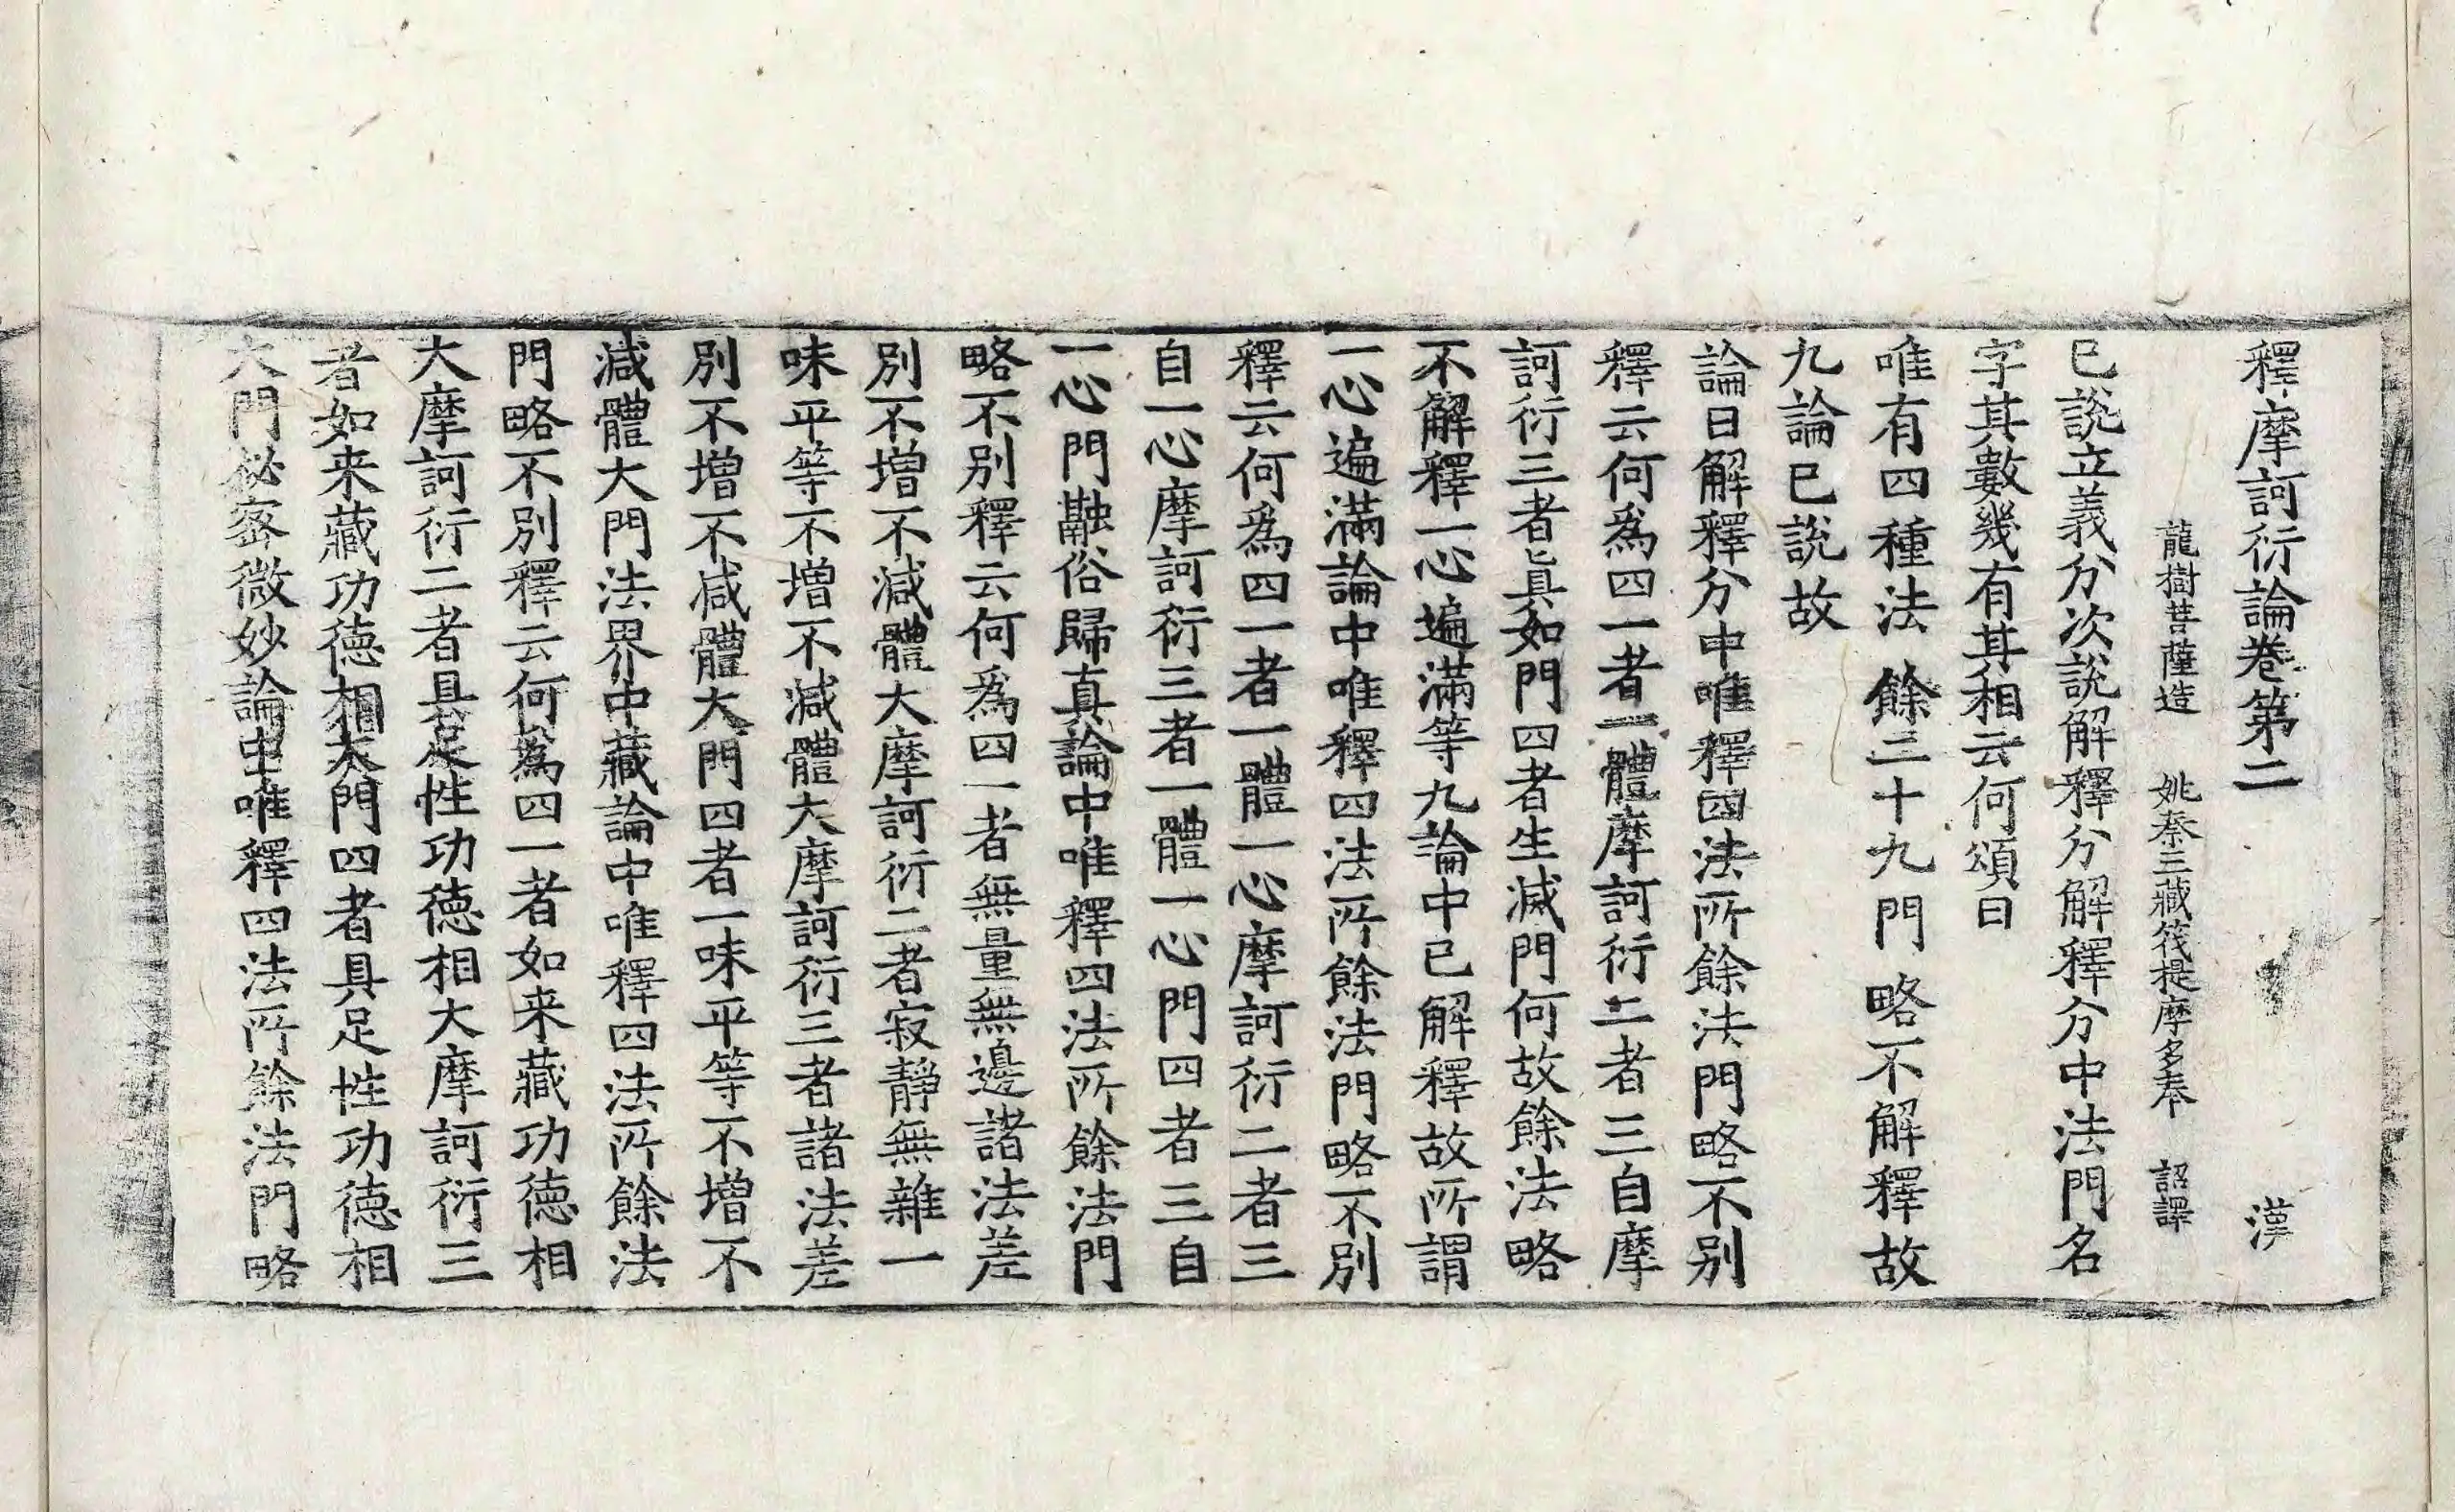 釋摩訶衍論卷第二 漢
龍樹菩薩造 姚秦三藏筏提摩多奉 詔譯
已說立義分次說解釋分解釋分中法門名
字其數幾有其相云何頌曰
唯有四種法 餘三十九門 略不解釋故
九論已說故
論曰解釋分中唯釋四法所餘法門略不別
釋云何為四一者一體摩訶衍二者三自摩
訶衍三者真如門四者生滅門何故餘法略
不解釋一心遍滿等九論中已解釋故所謂
一心遍滿論中唯釋四法所餘法門略不別
釋云何為四一者一體一心摩訶衍二者三
自一心摩訶衍三者一體一心門四者三自
一心門融俗歸真論中唯釋四法所餘法門
略不別釋云何為四一者無量無邊諸法差
別不增不減體大摩訶衍二者寂靜無雜一
味平等不增不減體大摩訶衍三者諸法差
別不增不減體大門四者一味平等不增不
減體大門法界中藏論中唯釋四法所餘法
門略不別釋云何為四一者如来藏功德相
大摩訶衍二者具足性功德相大摩訶衍三
者如来藏功德相大門四者具足性功德相
大門秘密微妙論中唯釋四法所餘法門略